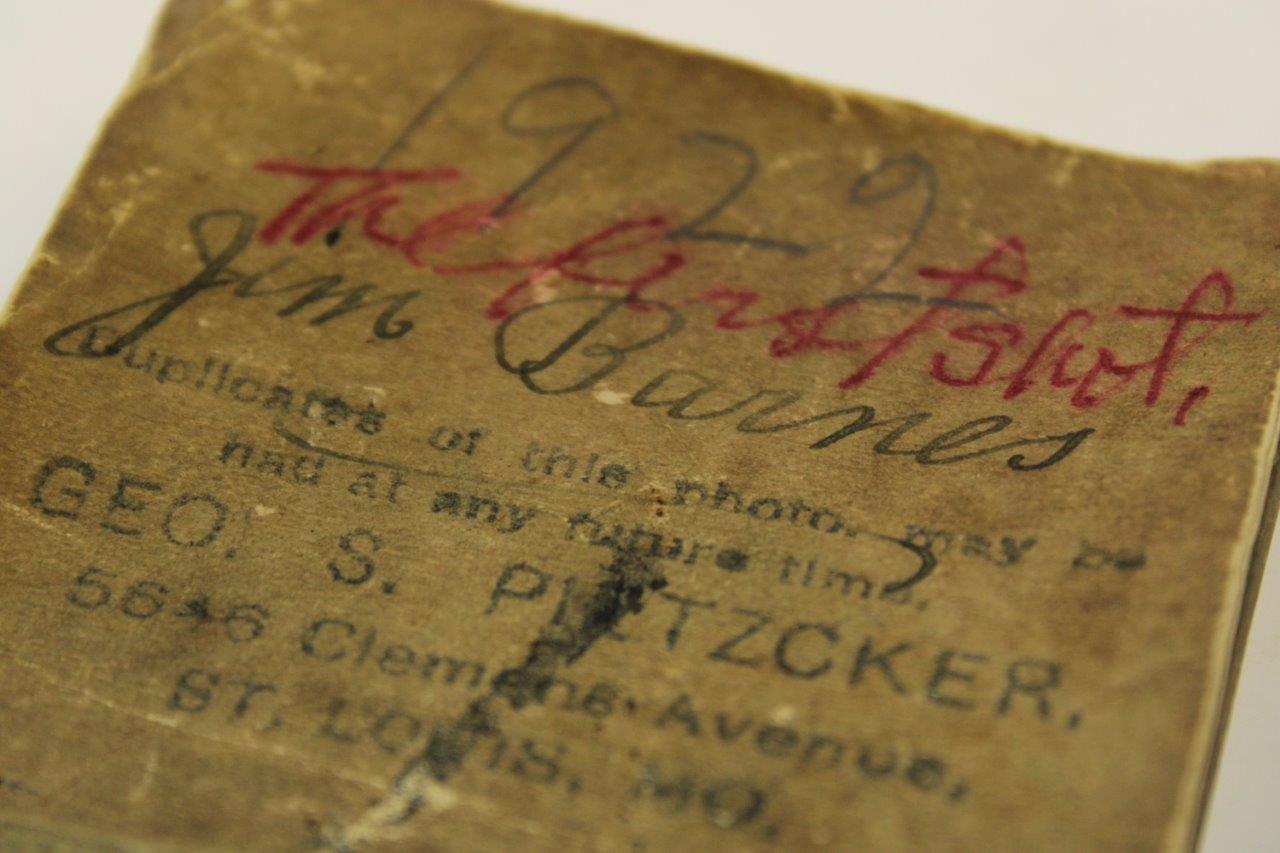 1922
The first shot,
Jim Barnes
Duplicates of this photo. may be
had at any future time.
GEO. S. PIETZCKER,
5646 Clemens Avenue,
ST. LOUIS, MO.